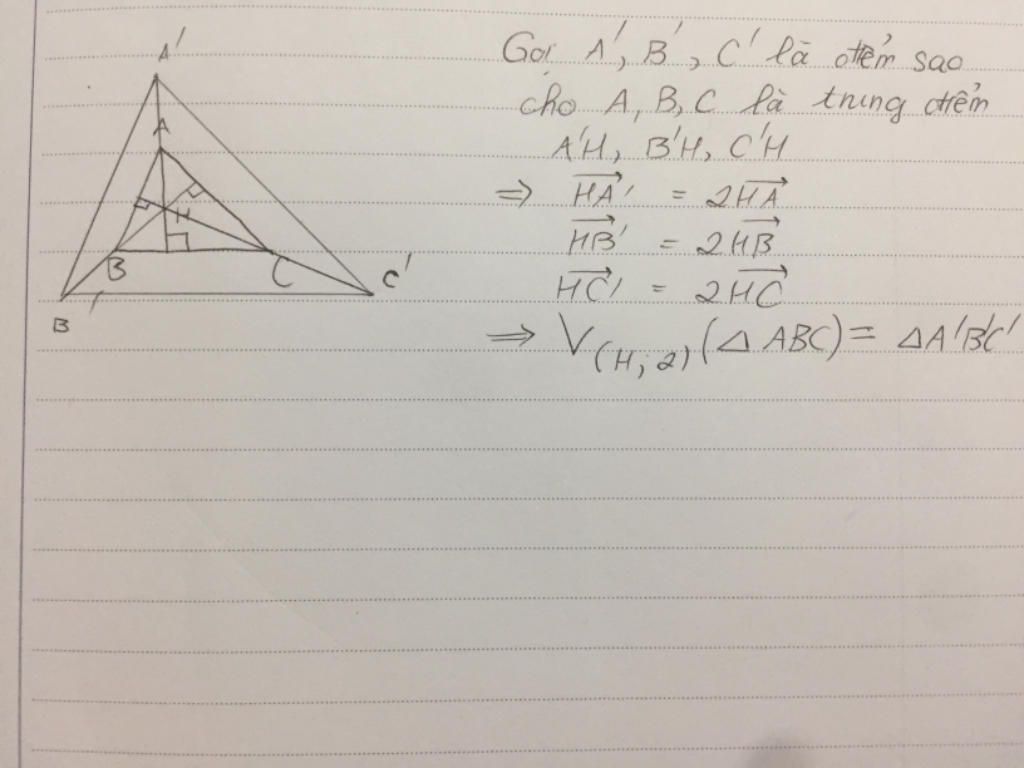 A'
A
H
B
C
C'
B'
Gọi A', B', C' là điểm sao
cho A, B, C là trung điểm
A'H, B'H, C'H
⇒ $\overrightarrow{HA'}$ = 2$\overrightarrow{HA}$
$\overrightarrow{HB'}$ = 2$\overrightarrow{HB}$
$\overrightarrow{HC'}$ = 2$\overrightarrow{HC}$
⇒ V_{(H; 2)} (△ ABC) = △A'B'C'